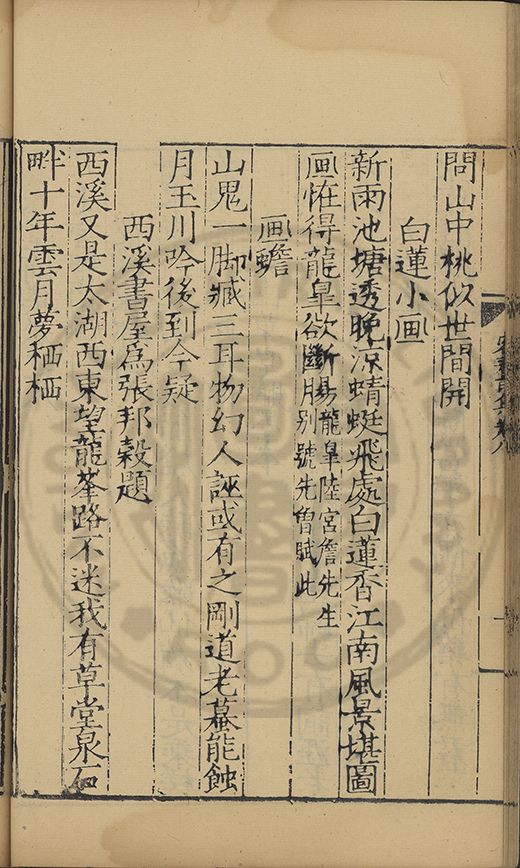 問山中桃似世間開
白蓮小画
新雨池塘透晚凉蜻蜓飛處白蓮香江南風景堪圖
画恠得龍皐欲斷腸龍皐陸宮詹先生别號先曽賦此
画蟾
山鬼一脚臧三耳物幻人誣或有之剛道老蟇能蝕
月玉川吟後到今疑
西溪書屋爲張邦榖題
西溪又是太湖西東望龍峯路不迷我有草堂泉石
畔十年雲月夢栖栖